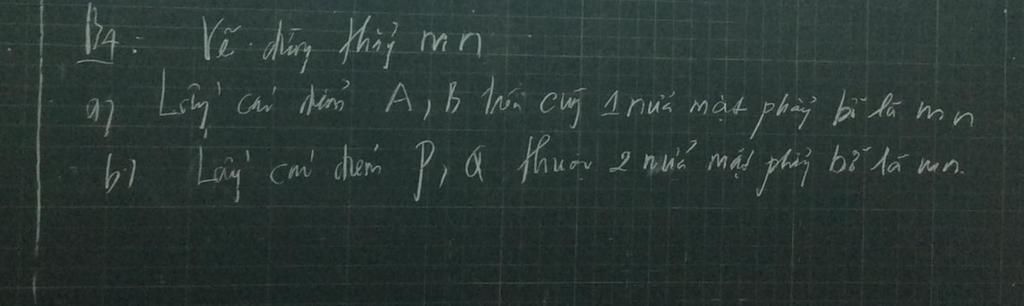 B4: Vẽ đường thẳng mn
a) Lấy các điểm A, B trên cùng 1 nửa mặt phẳng bờ là mn
b) Lấy các điểm P, Q thuộc 2 nửa mặt phẳng bờ là mn.